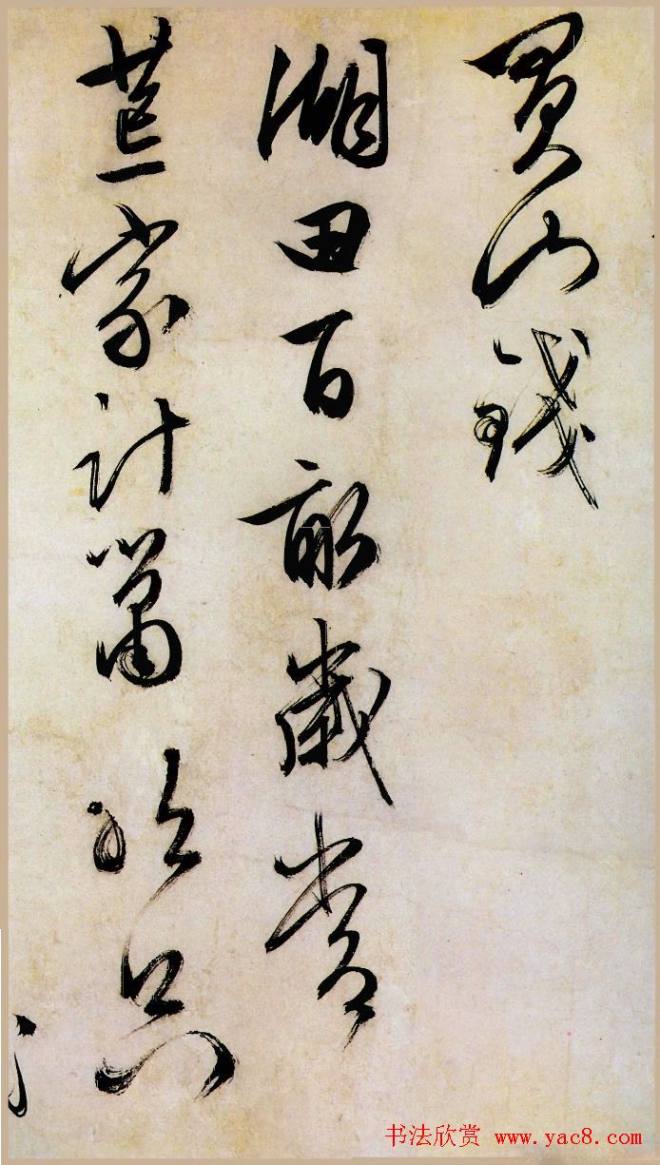 買山錢
湖田百畝歲常
荒家計蕭只
书法欣赏 www.yac8.com